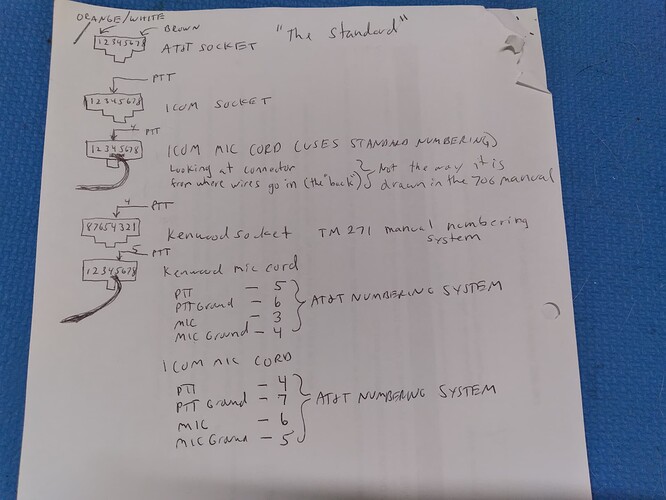 ORANGE/WHITE
BROWN
"The Standard"
12345678
AT&T SOCKET
PTT
12345678
ICOM SOCKET
4 PTT
12345678
ICOM MIC CORD (USES STANDARD NUMBERING)
Looking at connector
from where wires go in (the "back")
Not the way it is
drawn in the 706 manual
4 PTT
87654321
Kenwood socket TM 271 manual numbering
system
5 PTT
12345678
Kenwood mic cord
PTT — 5
PTT Ground — 6
MIC — 3
MIC Ground — 4
AT&T NUMBERING SYSTEM
ICOM MIC CORD
PTT — 4
PTT Ground — 7
MIC — 6
MIC Ground — 5
AT&T NUMBERING SYSTEM